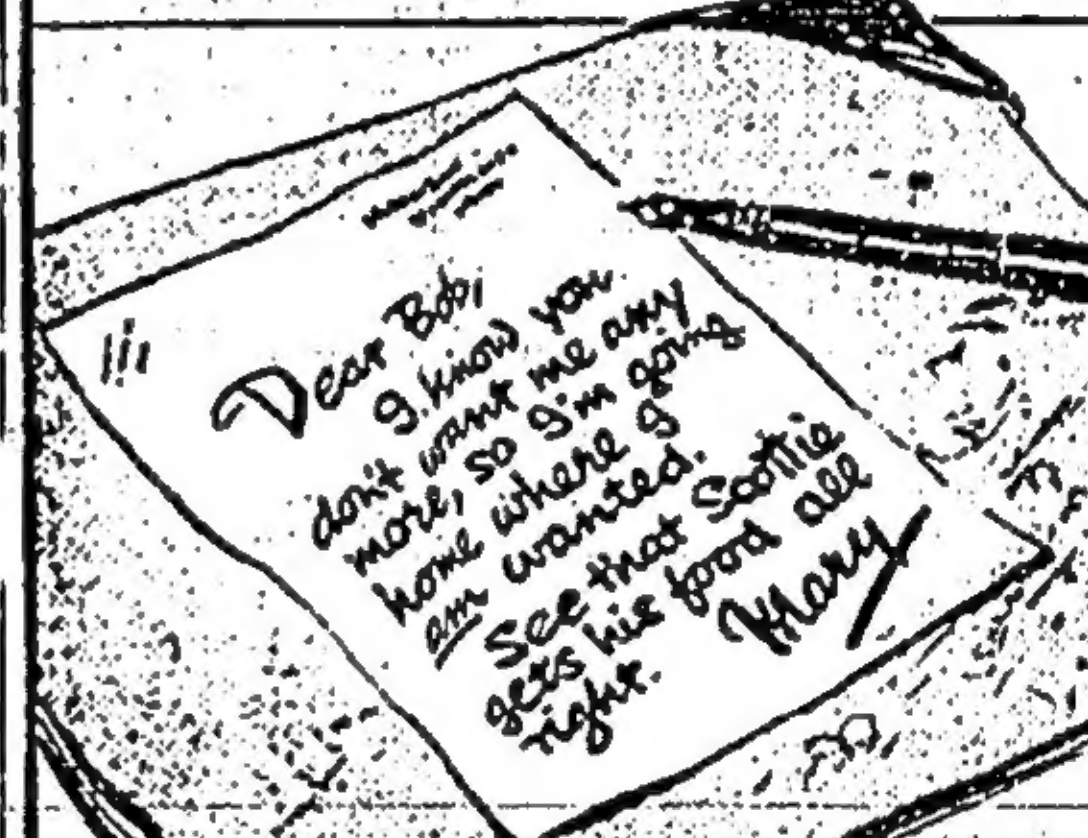 Dear Bob,
I know you
don't want me any
more, so I'm going
home where I
am wanted.
See that Scottie
gets his food all
right.
Mary